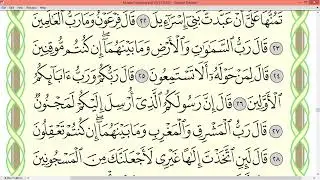 تَمُنُّهَا عَلَىَّ أَنْ عَبَّدتَّ بَنِىٓ إِسْرَٰٓءِيلَ ٢٢ قَالَ فِرْعَوْنُ وَمَا رَبُّ ٱلْعَٰلَمِينَ
٢٣ قَالَ رَبُّ ٱلسَّمَٰوَٰتِ وَٱلْأَرْضِ وَمَا بَيْنَهُمَآ ۖ إِن كُنتُم مُّوقِنِينَ
٢٤ قَالَ لِمَنْ حَوْلَهُۥٓ أَلَا تَسْتَمِعُونَ ٢٥ قَالَ رَبُّكُمْ وَرَبُّ ءَابَآئِكُمُ
ٱلْأَوَّلِينَ ٢٦ قَالَ إِنَّ رَسُولَكُمُ ٱلَّذِىٓ أُرْسِلَ إِلَيْكُمْ لَمَجْنُونٌ
٢٧ قَالَ رَبُّ ٱلْمَشْرِقِ وَٱلْمَغْرِبِ وَمَا بَيْنَهُمَآ ۖ إِن كُنتُمْ تَعْقِلُونَ
٢٨ قَالَ لَئِنِ ٱتَّخَذْتَ إِلَٰهًا غَيْرِى لَأَجْعَلَنَّكَ مِنَ ٱلْمَسْجُونِينَ